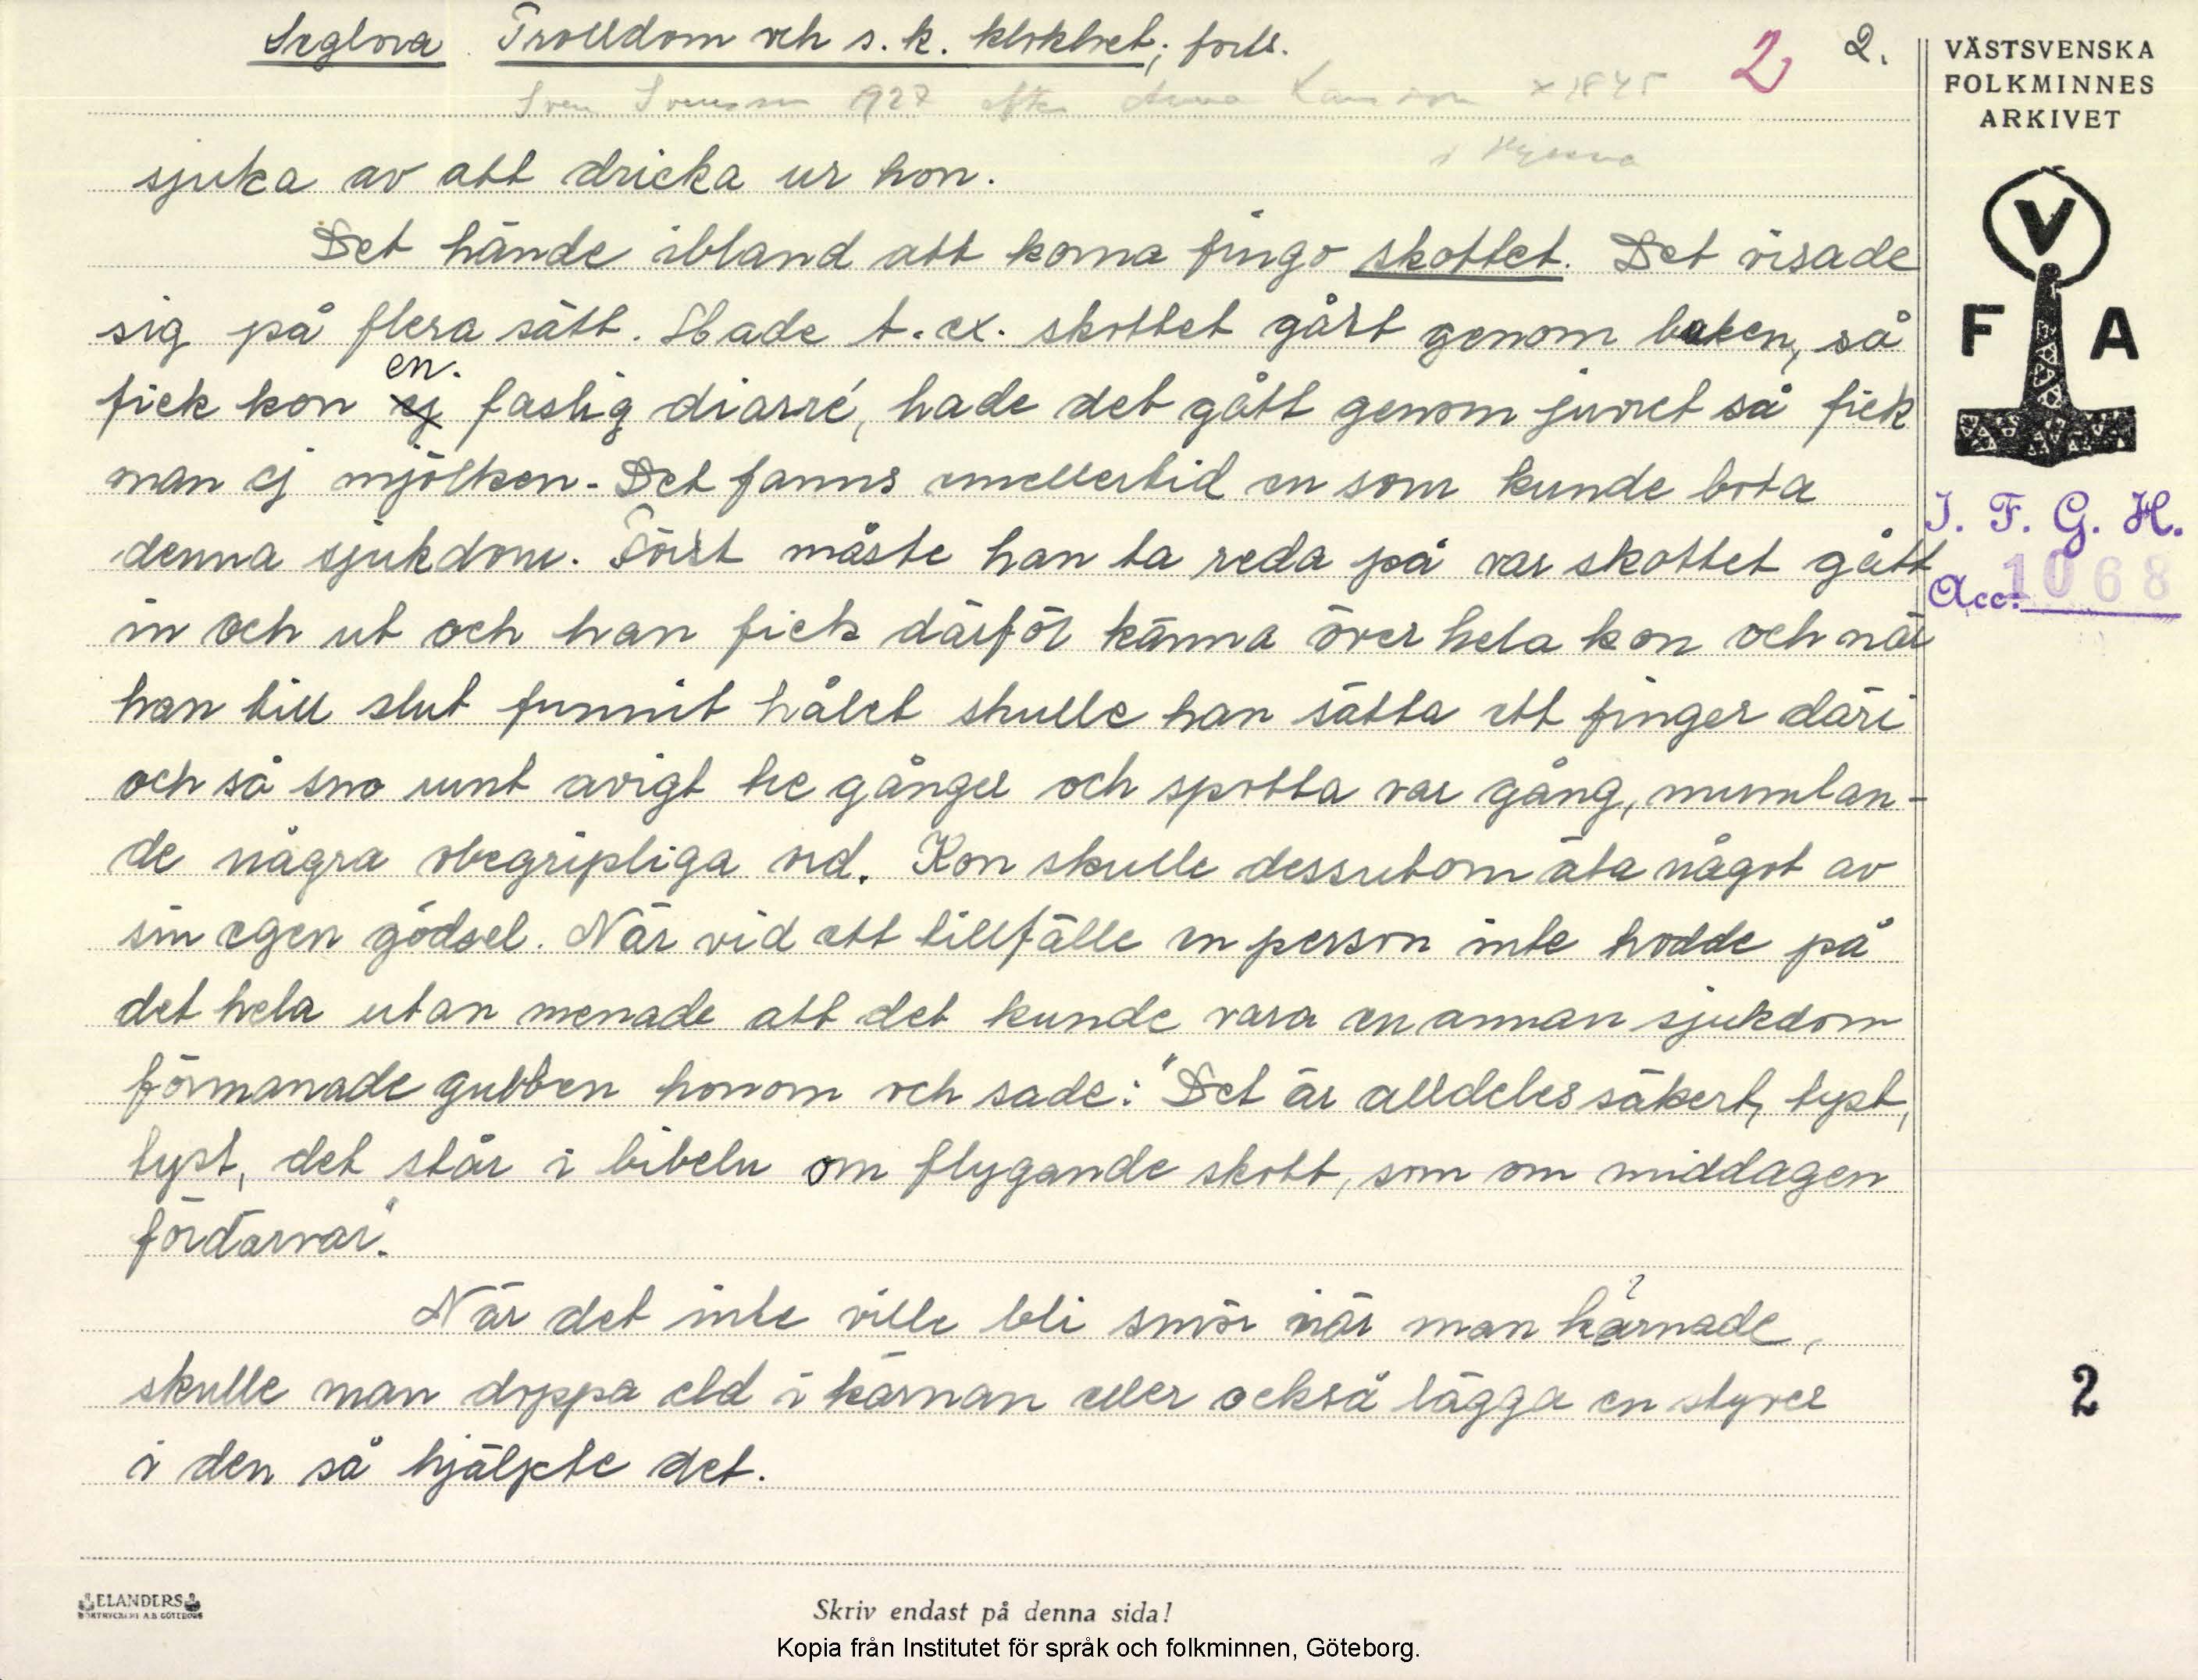 Seglora Trolldom och s.k. klokhet; forts.
2 2.
Sven Svensson 1927 efter Anna x 1845
i
sjuka av att dricka ur hon.
Det hände ibland att korna fingo skottet. Det visade
sig på flera sätt. Hade t. ex. skottet gått genom baken, så
en.
fick kon ej faslig diarré, hade det gått genom juvret så fick
man ej mjölken. Det fanns emellertid en som kunde bota
denna sjukdom. Först måste han ta reda på var skottet gått
in och ut och han fick därför känna över hela kon och när
han till slut funnit hålet skulle han sätta ett finger däri
och så sno runt avigt tre gånger och spotta var gång, mumlan-
de några obegripliga ord. Kon skulle dessutom äta något av
sin egen gödsel. När vid ett tillfälle en person inte trodde på
det hela utan menade att det kunde vara en annan sjukdom
förmanade gubben honom och sade: "Det är alldeles säkert, tyst,
tyst, det står i bibeln om flygande skott, som om middagen
fördärvar."
När det inte ville bli smör när man kärnade,
skulle man doppa eld i kärnan eller också lägga en styver
i den så hjälpte det.
VÄSTSVENSKA
FOLKMINNES
ARKIVET
V
F A
I. F. G. H.
Acc. 1068
2
ELANDERS
BOKTRYCKERI A.B. GÖTEBORG
Skriv endast på denna sida!
Kopia från Institutet för språk och folkminnen, Göteborg.